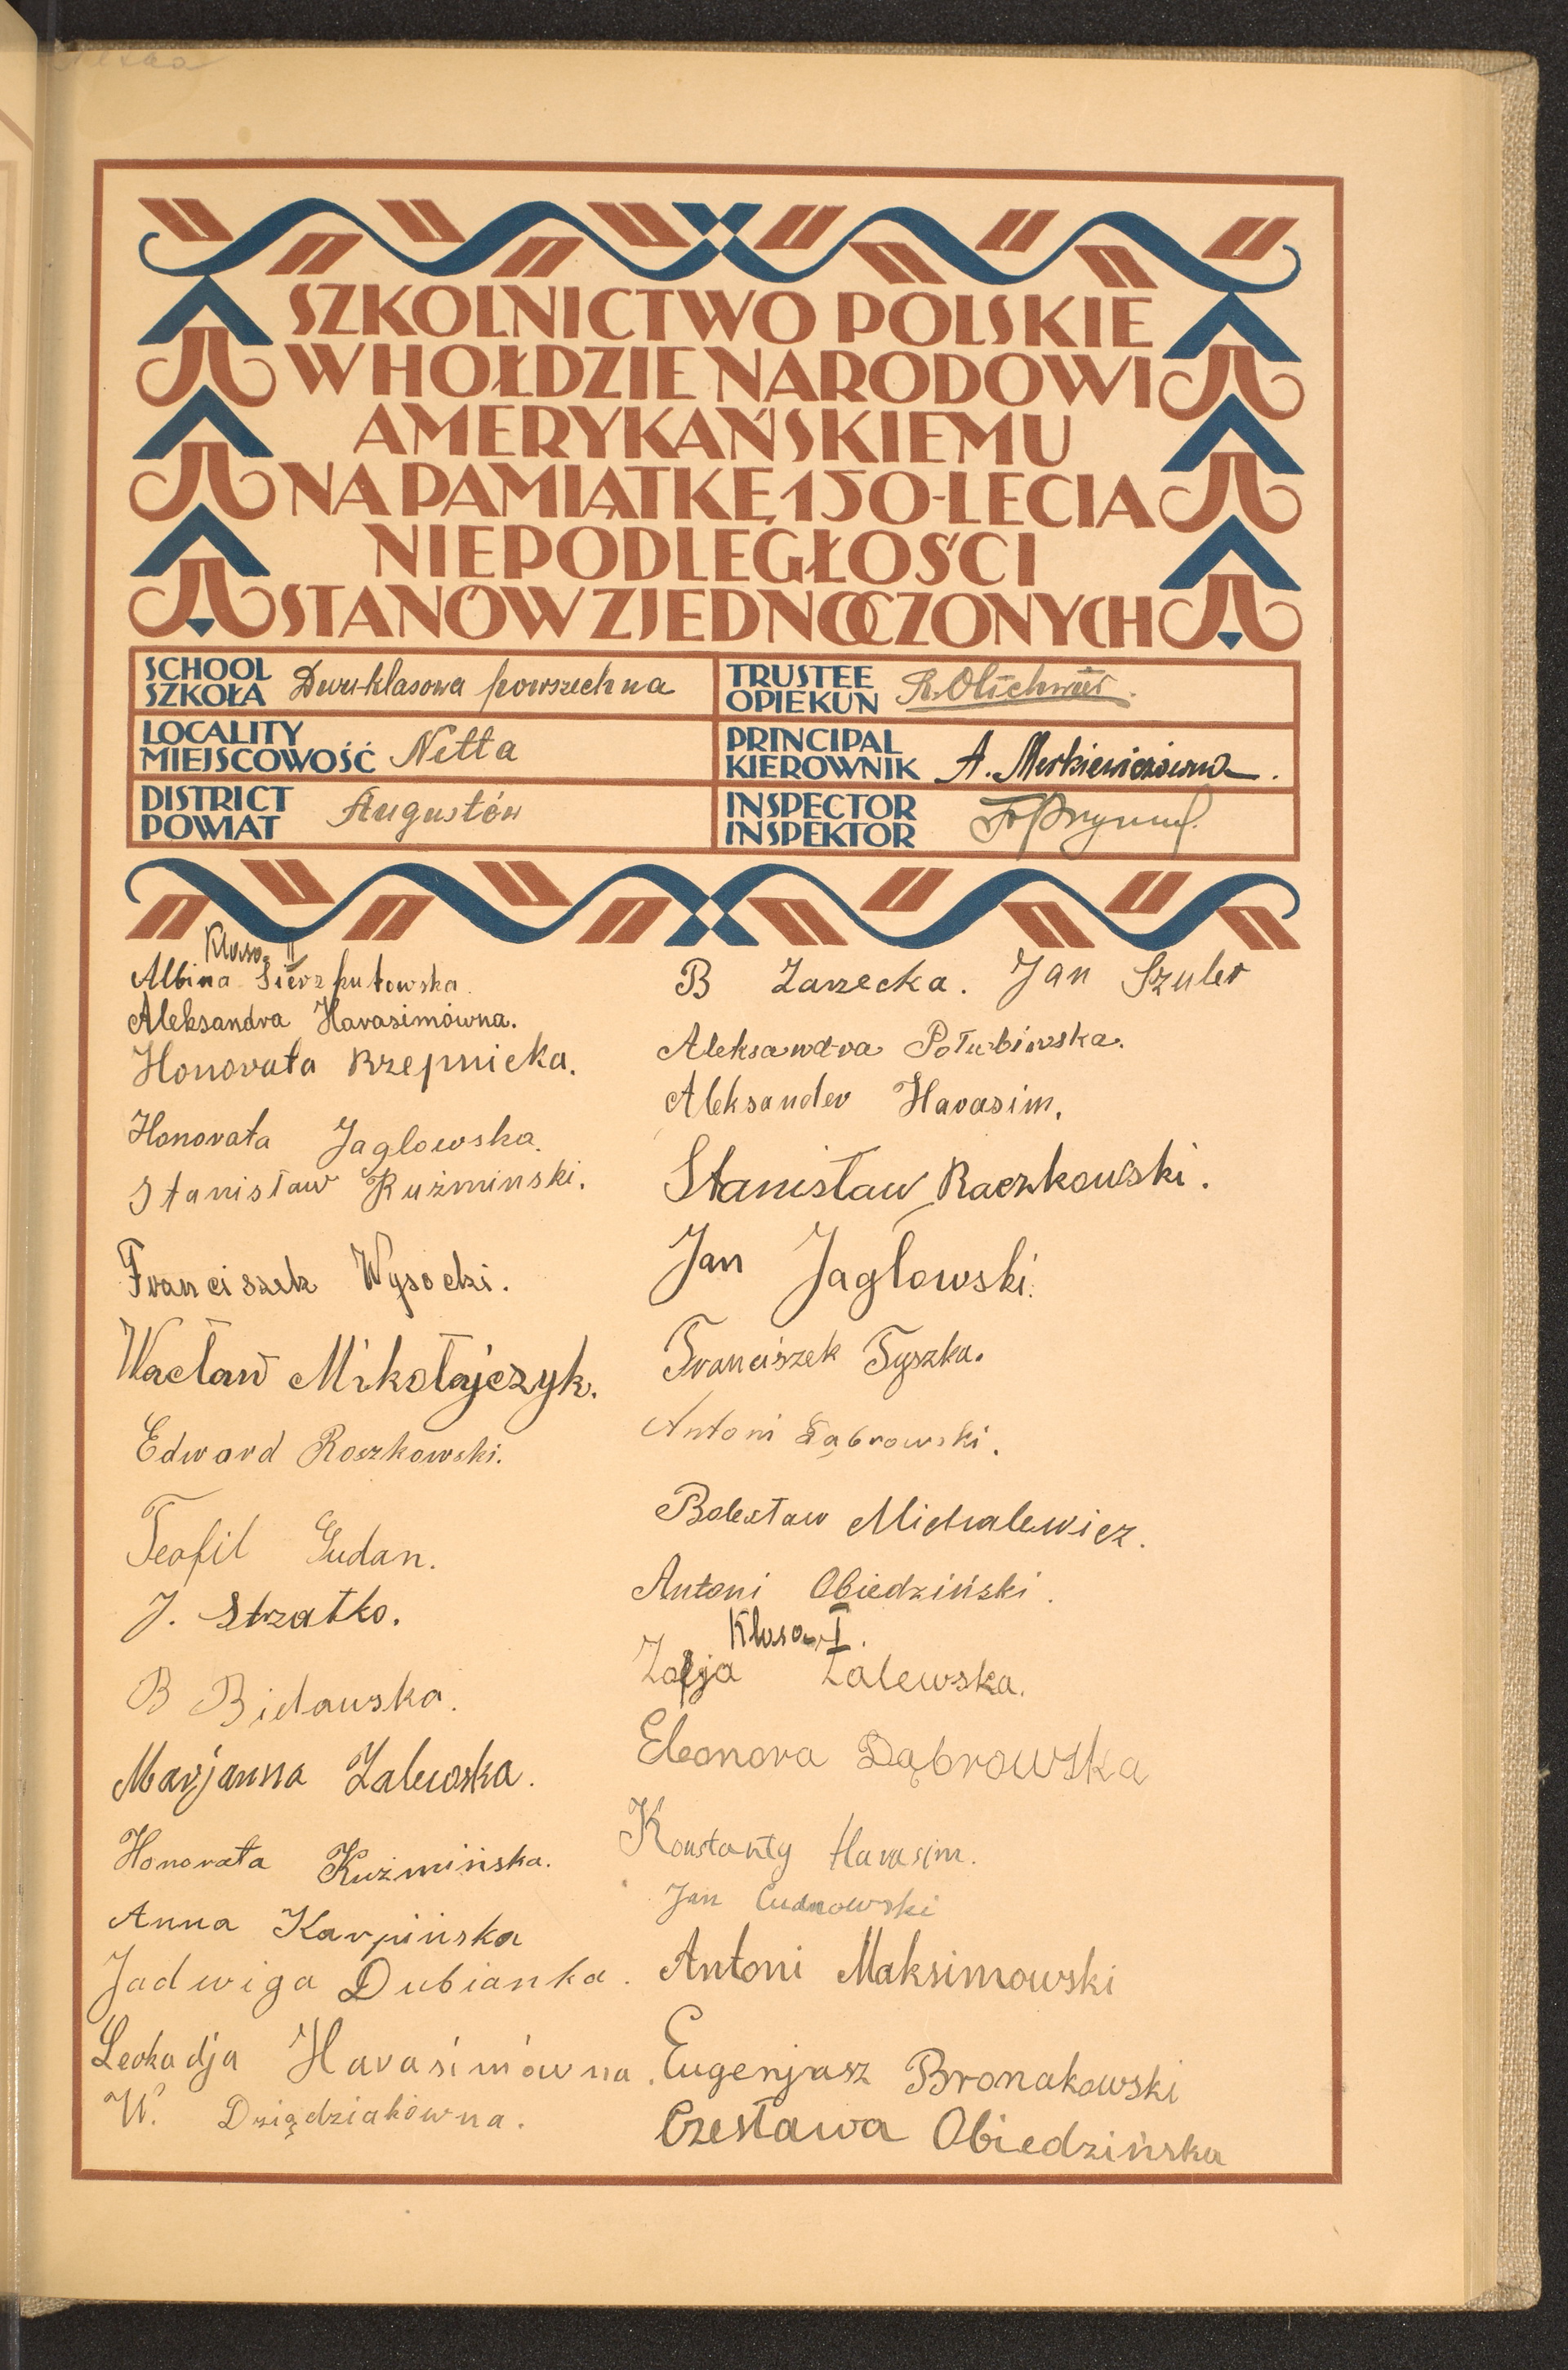 SZKOLNICTWO POLSKIE
W HOŁDZIE NARODOWI
AMERYKAŃSKIEMU
NA PAMIĄTKĘ 150-LECIA
NIEPODLEGŁOŚCI
STANÓW ZJEDNOCZONYCH
SCHOOL
SZKOŁA Dwu-klasowa powszechna
LOCALITY
MIEJSCOWOŚĆ Netta
DISTRICT
POWIAT Augustów
TRUSTEE
OPIEKUN
PRINCIPAL
KIEROWNIK A.
INSPECTOR
INSPEKTOR
Klasa II
Albina Sierzputowska.
Aleksandra Harasimówna.
Honorata Rzepnicka.
Honorata Jaglowska.
Stanisław Kuźminski.
Franciszek Wysocki.
Wacław Mikołajczyk.
Edward Roszkowski.
Teofil Gudan.
J. Strzałko.
B Bielawska.
Marjanna Zalewska.
Honorata Kuźmińska.
Anna Karpińska
Jadwiga Dubianka.
Leokadja Harasimówna.
W. Dziądziakówna.
B Zarzecka. Jan Szuler
Aleksandra Połubińska.
Aleksander Harasim.
Stanisław Raczkowski.
Jan Jaglowski.
Franciszek Tyszka.
Antoni Dąbrowski.
Bolesław Michalewicz.
Antoni Obiedziński.
Klasa I.
Zofja Zalewska.
Eleonora Dąbrowska
Konstanty Harasim.
Jan Cudnowski
Antoni Maksimowski
Eugenjusz Bronakowski
Czesława Obiedzińska